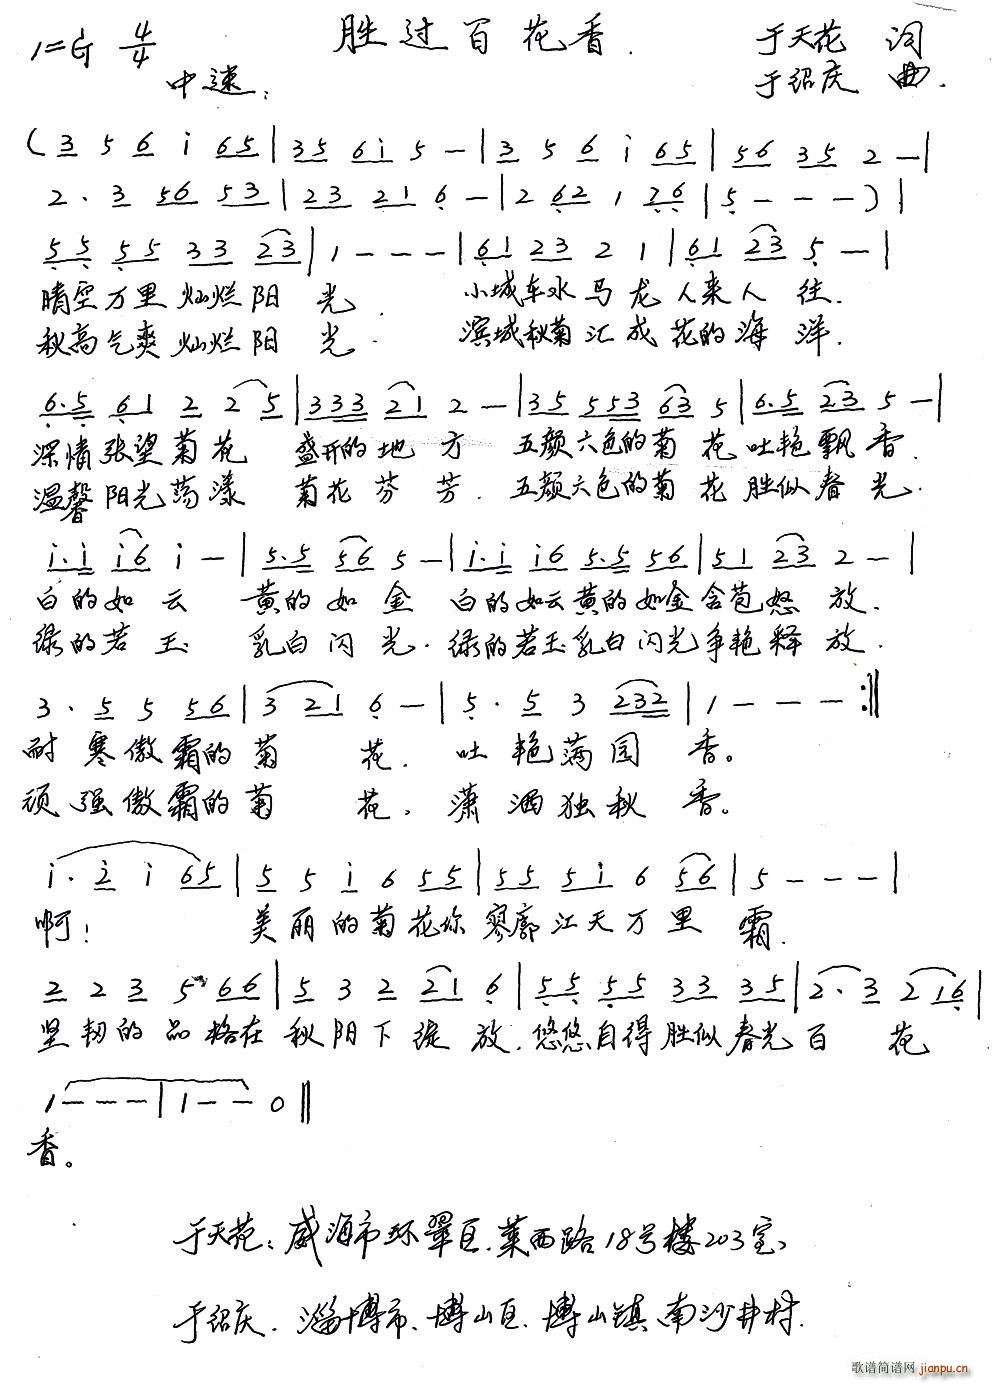 胜过百花香.
1=G 4/4 于天花 词
中速: 于绍庆 曲.
(3 5 6 i 65|35 6i 5 -|3 5 6 i 65|56 35 2 -|
2. 3 56 53|23 21 6 -|2 62 1 76|5 - - -)|
55 55 33 23|1 - - -|61 23 2 1|61 23 5 -|
晴空万里灿烂阳 光. 小城车水马龙人来人 往.
秋高气爽灿烂阳 光. 滨城秋菊汇成花的海 洋.
6.5 61 2 2 5|333 21 2 -|35 553 63 5|6.5 23 5 -|
深情张望菊花 盛开的地 方 五颜六色的菊 花吐艳飘香.
温馨阳光荡漾 菊花芬 芳. 五颜六色的菊 花胜似春光.
i.i i6 i -|5.5 56 5 -|i.i i6 5.5 56|51 23 2 -|
白的如云 黄的如金 白的如云黄的如金含苞怒 放.
绿的若玉 乳白闪光. 绿的若玉乳白闪光争艳释 放.
3. 5 5 56|3 21 6 -|5. 5 3 232|1 - - - :||
耐寒傲霜的菊 花. 吐艳满园 香。
顽强傲霜的菊 花, 潇洒独秋 香。
i. 2 i 65|5 5 i 6 55|55 5i 6 56|5 - - -|
啊! 美丽的菊花你寥廓江天万里 霜.
2 2 3 5 66|5 3 2 21 6|55 55 33 35|2. 3 2 16|
坚韧的品格在秋阳下绽 放. 悠悠自得胜似春光百 花
1 - - -|1 - - 0||
香。
于天花: 威海市环翠区.莱西路18号楼203室、
于绍庆. 淄博市、博山区.博山镇、南沙井村.
歌谱简谱网 jianpu.cn